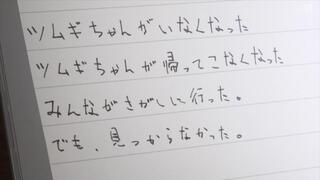 ツムギちゃんがいなくなった
ツムギちゃんが帰ってこなくなった
みんながさがしに行った。
でも、見つからなかった。